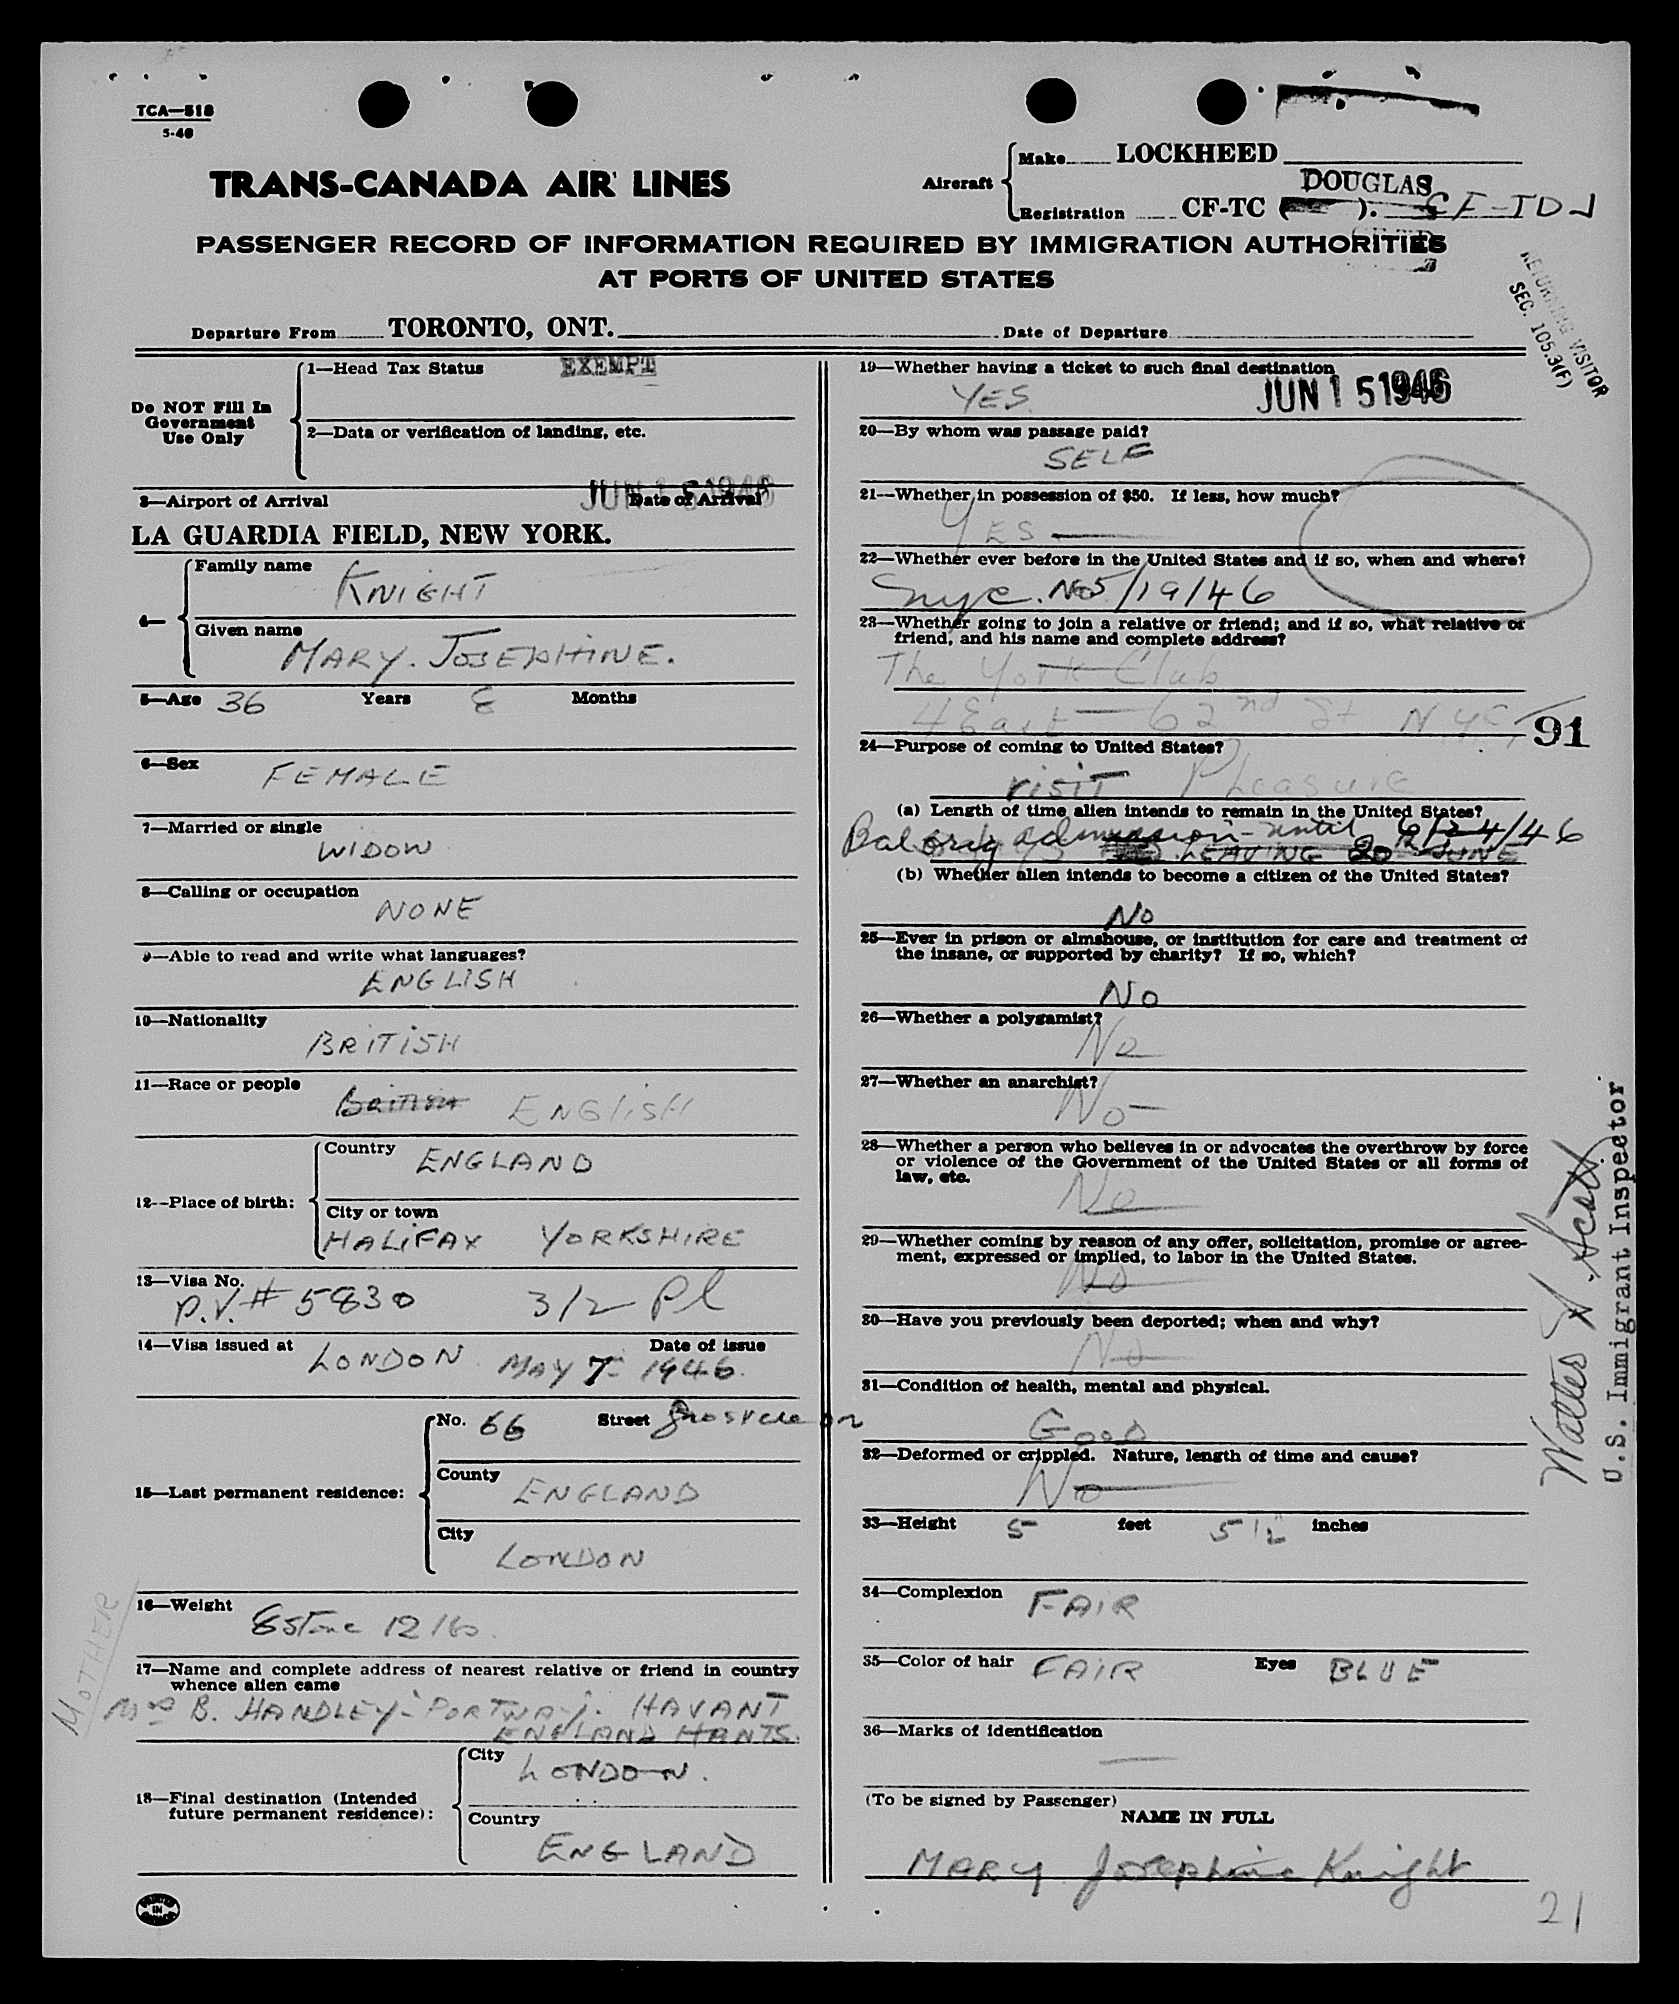 TCA—518
5-46
TRANS-CANADA AIR LINES
Aircraft
Make LOCKHEED
DOUGLAS
Registration CF-TC ( ). CF-TDJ
PASSENGER RECORD OF INFORMATION REQUIRED BY IMMIGRATION AUTHORITIES
AT PORTS OF UNITED STATES
RETURNING VISITOR
SEC. 105.3(F)
Departure From TORONTO, ONT. Date of Departure
Do NOT Fill In
Government
Use Only
1—Head Tax Status EXEMPT
2—Data or verification of landing, etc.
3—Airport of Arrival Date of Arrival JUN 15 1946
LA GUARDIA FIELD, NEW YORK.
4—
Family name KNIGHT
Given name MARY. JOSEPHINE.
5—Age 36 Years 8 Months
6—Sex FEMALE
7—Married or single
WIDOW
8—Calling or occupation
NONE
9—Able to read and write what languages?
ENGLISH
10—Nationality
BRITISH
11—Race or people
BRITISH ENGLISH
12—Place of birth:
Country ENGLAND
City or town
HALIFAX YORKSHIRE
13—Visa No.
P.V. # 5830 3/2 Pl
14—Visa issued at LONDON Date of issue
MAY 7 1946.
15—Last permanent residence:
No. 66 Street
County
ENGLAND
City
LONDON
16—Weight
8 Stone 12 lbs.
17—Name and complete address of nearest relative or friend in country
whence alien came
MOTHER
MRS B. HANDLEY-PORTWAY. HAVANT
ENGLAND HANTS.
18—Final destination (Intended
future permanent residence):
City
LONDON.
Country
ENGLAND
19—Whether having a ticket to such final destination
YES JUN 15 1946
20—By whom was passage paid?
SELF
21—Whether in possession of $50. If less, how much?
YES —
22—Whether ever before in the United States and if so, when and where?
NYC. 5/19/46
23—Whether going to join a relative or friend; and if so, what relative or
friend, and his name and complete address?
The York Club
4 East — 62nd St NYC
91
24—Purpose of coming to United States?
visit Pleasure
(a) Length of time alien intends to remain in the United States?
Bal orig admission until 6/24/46
LEAVING 20th JUNE
(b) Whether alien intends to become a citizen of the United States?
No
25—Ever in prison or almshouse, or institution for care and treatment of
the insane, or supported by charity? If so, which?
No
26—Whether a polygamist?
No
27—Whether an anarchist?
No —
28—Whether a person who believes in or advocates the overthrow by force
or violence of the Government of the United States or all forms of
law, etc.
No
29—Whether coming by reason of any offer, solicitation, promise or agree-
ment, expressed or implied, to labor in the United States.
No
30—Have you previously been deported; when and why?
No
31—Condition of health, mental and physical.
Good
32—Deformed or crippled. Nature, length of time and cause?
No
33—Height 5 feet 5 1/2 inches
34—Complexion FAIR
35—Color of hair FAIR Eyes BLUE
36—Marks of identification
—
(To be signed by Passenger)
NAME IN FULL
MARY Josephine Knight
Walter Scott
U.S. Immigrant Inspector
21